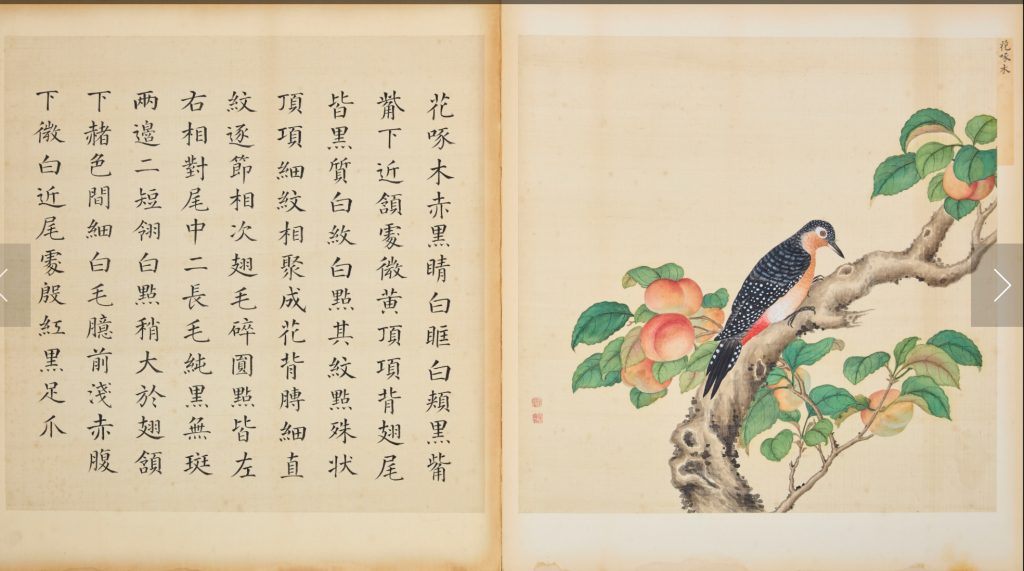 花啄木
花啄木赤黑睛白眶白頰黑觜
觜下近頷處微黃頂項背翅尾
皆黑質白紋白點其紋點殊狀
頂項細紋相聚成花背膊細直
紋逐節相次翅毛碎圓點皆左
右相對尾中二長毛純黑無斑
兩邊二短翎白點稍大於翅頷
下赭色間細白毛臆前淺赤腹
下微白近尾處殷紅黑足爪